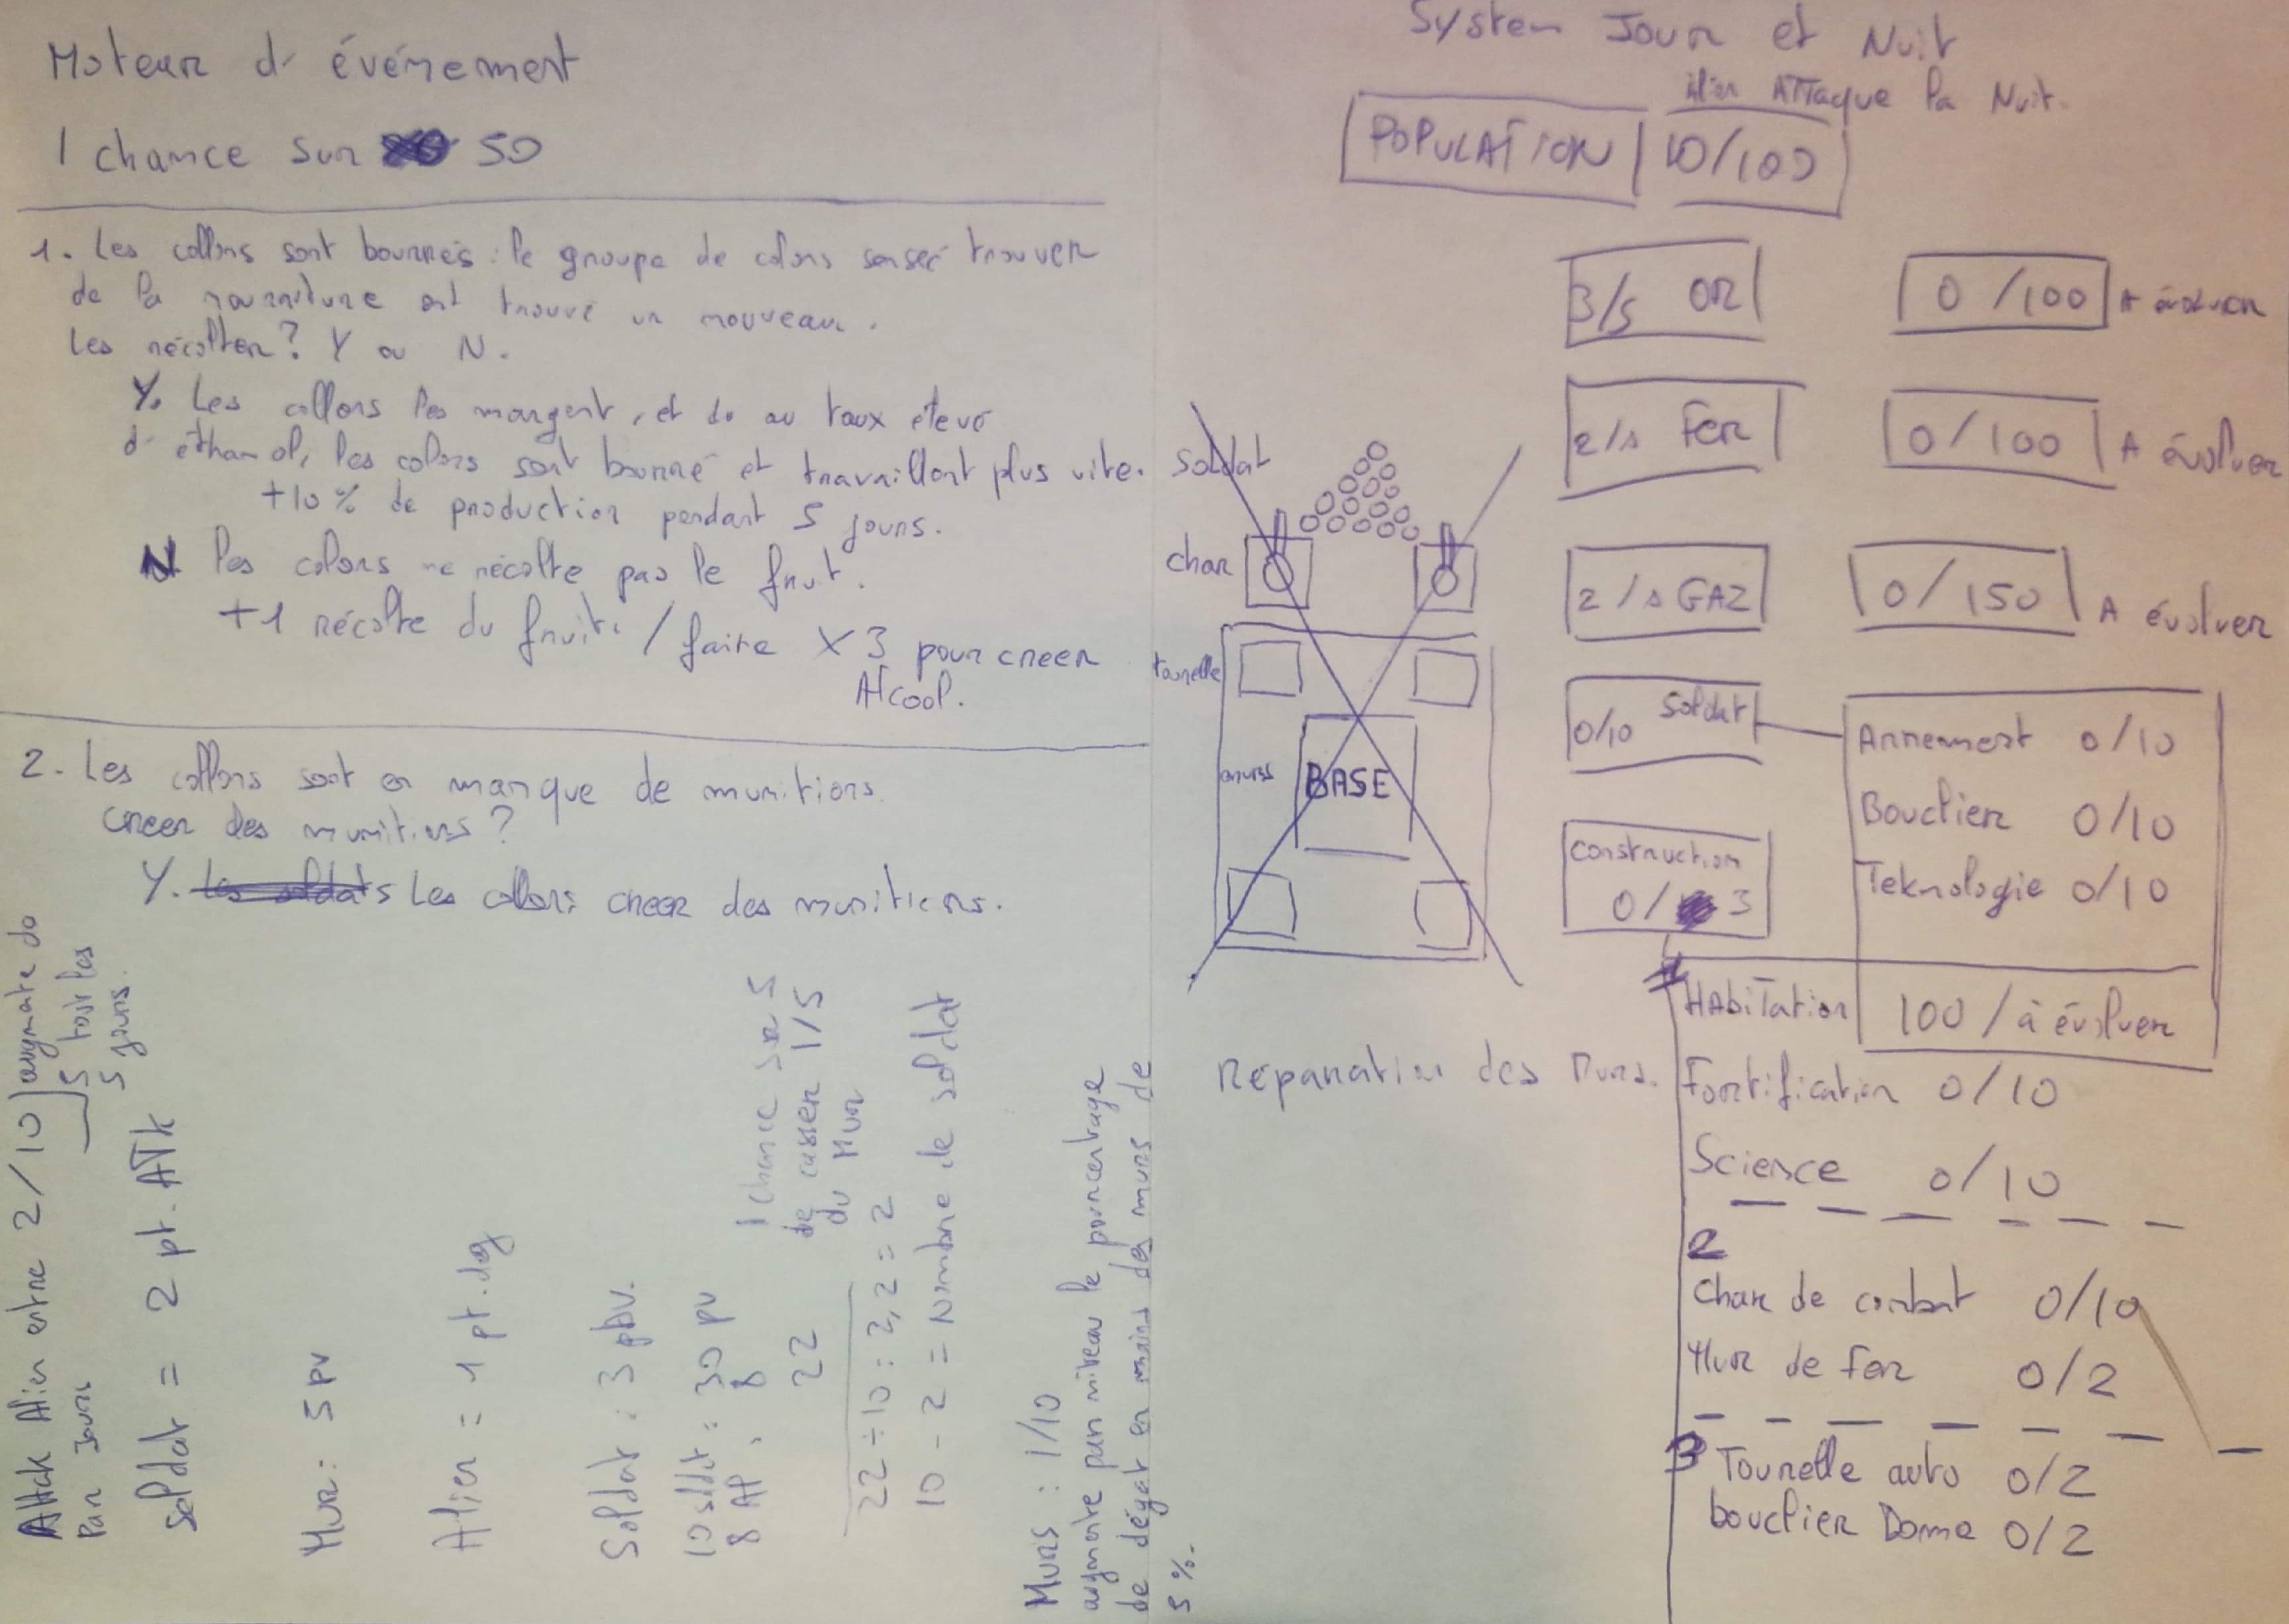 Moteur d'événement
1 chance sur 50
1. Les collons sont bourrés : le groupe de colons sensé trouver
de la nourriture ont trouvé un nouveau.
Les récolter? Y ou N.
Y. Les collons les mangent, et du au taux élevé
d'éthanol, les colons sont bourré et travaillent plus vite.
+10% de production pendant 5 jours.
N les colons ne récolte pas le fruit.
+1 récolte du fruit. / faire x 3 pour creer
Alcool.
2. Les collons sont en manque de munitions.
creer des munitions?
Y. Les soldats Les collons creer des munitions.
Attak Alien entre 2/10 augmente de
Par Jours
5 tout les
5 jours.
Soldat = 2 pt. ATk
Mur : 5 PV
Alien = 1 pt. deg
Soldat : 3 pdv.
10 soldat : 30 pv
8 Al 8
22
1 chance sur 5
de casser 1/5
du Mur
22 ÷ 10 : 2,2 = 2
10 - 2 = Nombre de soldat
Murs : 1/10
augmente par niveau le pourcentage
de dégat en moins des murs de
5 %.
System Jour et Nuit
Alien ATTaque la Nuit.
POPULATION 10/100
3/s OR 0 /100 A évoluer
2/s Fer 0/100 A évoluer
2/s GAZ 0/150 A évoluer
Soldat
char
tourelle
murs
BASE
Soldat
0/10
Armement 0/10
Bouclier 0/10
Teknologie 0/10
construction
0/ 3
Reparation des Murs.
1
HAbiTation 100 / à évoluer
Fortification 0/10
Science 0/10
2
Char de combat 0/10
Mur de fer 0/2
3 Tourelle auto 0/2
bouclier Dome 0/2